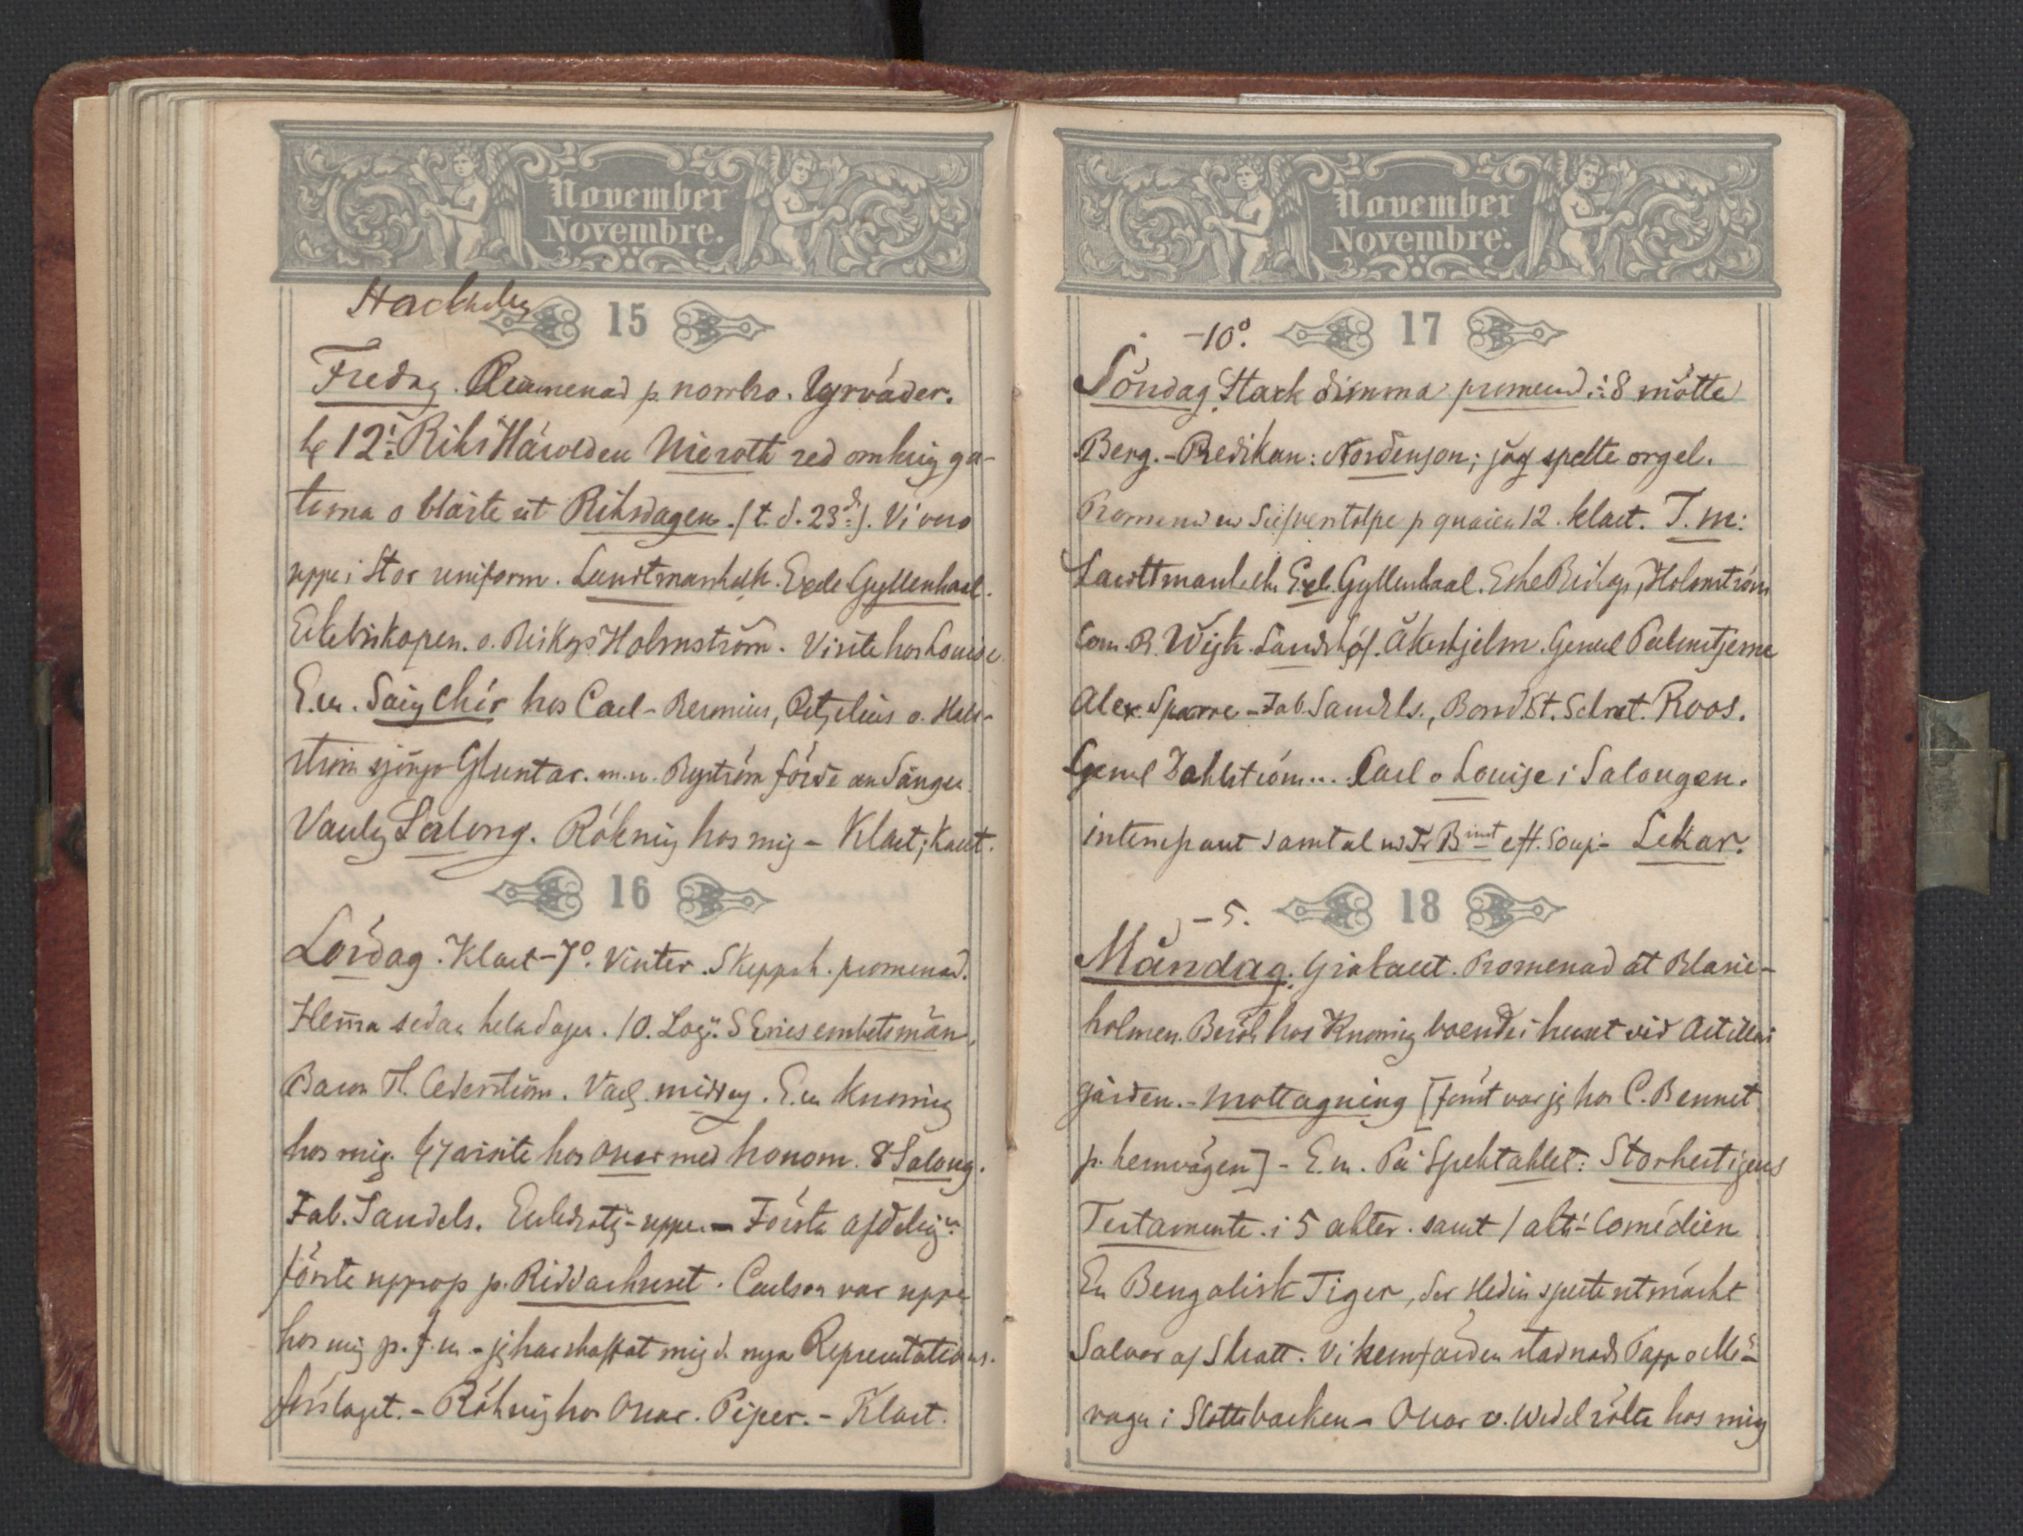 November
Novembre.
15
Fredag. Promenad p. norrbro. Yrväder.
kl 12 Riks Härolden Nieroth red omkring ga-
torna o blåste ut Riksdagen. / t. d. 23 /. Vi voro
uppe i Stor uniform. Exele Gyllenhaal.
Erkebiskopen. o. Biskop Holmström. Visite hos Louise
E.m. Sång Chör hos Carl - o. Hall-
ström sjöngo Gluntar. m.m. förde an Sången.
Vanlig Salong. Rökning hos mig - Klart; kallt.
16
Lördag. Klart - 7°. Vinter. Skeppsh. promenad.
Hemma sedan hela dagen. 10. S Erics embetsmän,
Baron Th. Cederström. Vanl. middag. E.m Knorring
hos mig. kl 7 visite hos Oscar med honom. 8 Salong.
Fab. Sandels. uppe. - Första
förste upprop p. Riddarhuset. Carlson var uppe
hos mig p. f.m. - jg har skaffat mig d. nya Representations-
förslaget. - Rökning hos Oscar. Piper. - Klart.
November
Novembre.
-10°. 17
Söndag. Stark dimma promenad 8 mötte
Berg. - Predikan: Nordenson; jag spelte orgel.
Promenad m p quaien 12. klart. T. m:
Exl. Gyllenhaal. Erke Biskop, Holmström
Com. R. Wijk. Landshöf. Åkerhjelm. General Palmstjerna
Alex. Sparre - Fab. Sandels., Bond. St. Secret. Roos.
General Dahlström... Carl o Louise i Salongen.
samtal eft. Soup - Lekar.
-5. 18
Måndag. Gråkallt. Promenad åt Blasie-
holmen. Besök hos Knorring boende i huset vid Artilleri
gården. - Mottagning [förut var jg hos C. Bennet
p. hemvägen] - E.m. På Spektaklet: Storhertigens
Testamente. i 5 akter. samt 1 akts Comédien
En Bengalisk Tiger, der Hedin spelte utmärkt
Salvor af Skratt. Vi hemfärden stadnade
vagn i Slottsbacken - Oscar o. Wedel rökte hos mig